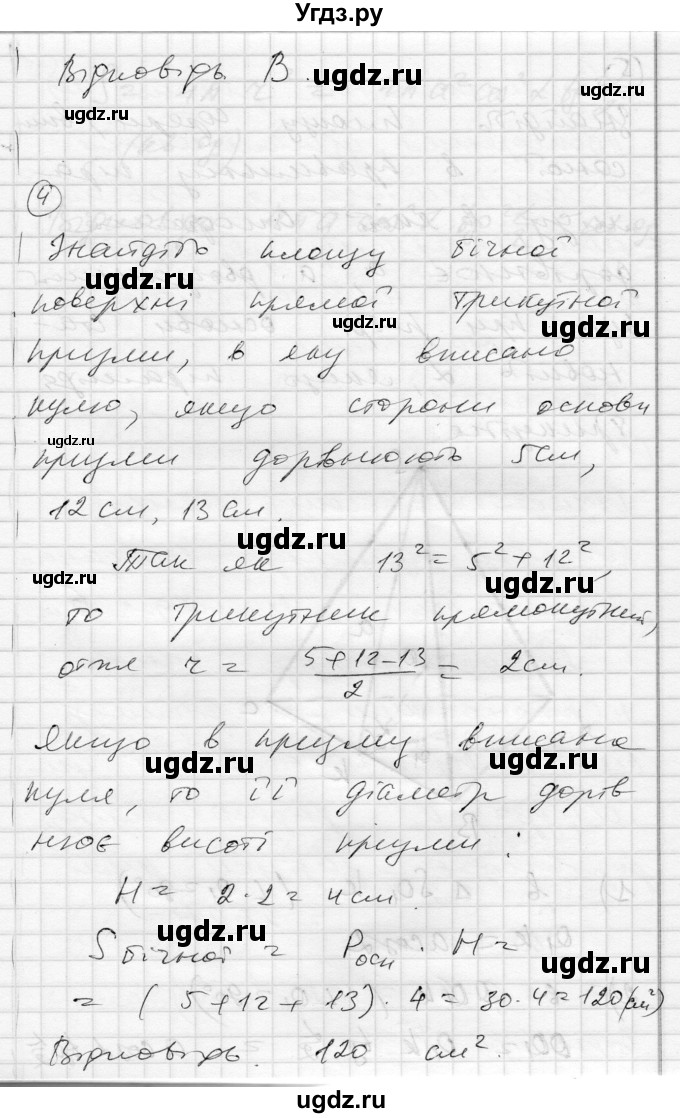 Угдз.ру
Відповідь В.
ugdz.ru
ugdz.ru
4
Знайдіть площу бічної
ugdz.ru
поверхні прямої трикутної
ugdz.ru
призми, в яку вписано
ugdz.ru
кулю, якщо сторони основи
ugdz.ru
призми дорівнюють 5см,
12 см, 13 см.
ugdz.ru
Так як 13² = 5² + 12²,
ugdz.ru
ugdz.ru
то трикутник прямокутний,
отже r = (5+12-13)/2 = 2см.
ugdz.ru
Якщо в призму вписана
ugdz.ru
ugdz.ru
куля, то її діаметр дорів
нює висоті призми:
ugdz.ru
H = 2·2 = 4 см.
Sбічної = Pосн · H =
ugdz.ru
ugdz.ru
= (5+12+13)·4 = 30·4 = 120(см²)
Відповідь. 120 см².
ugdz.ru
ugdz.ru
4
Угдз.ру